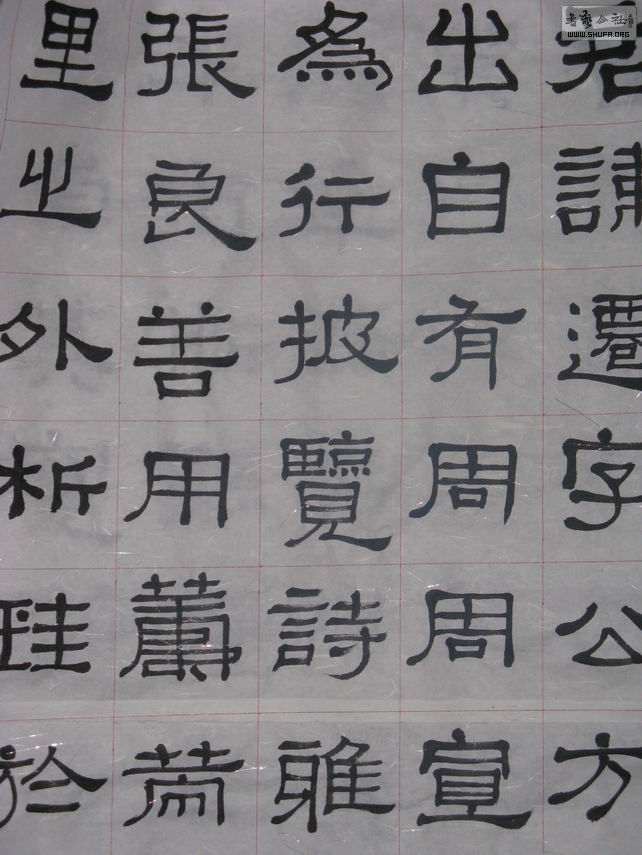 君諱遷字公方
出自有周周宣
為行披覽詩雅
張良善用籌策
里之外析珪於
WWW.SHUFA.ORG